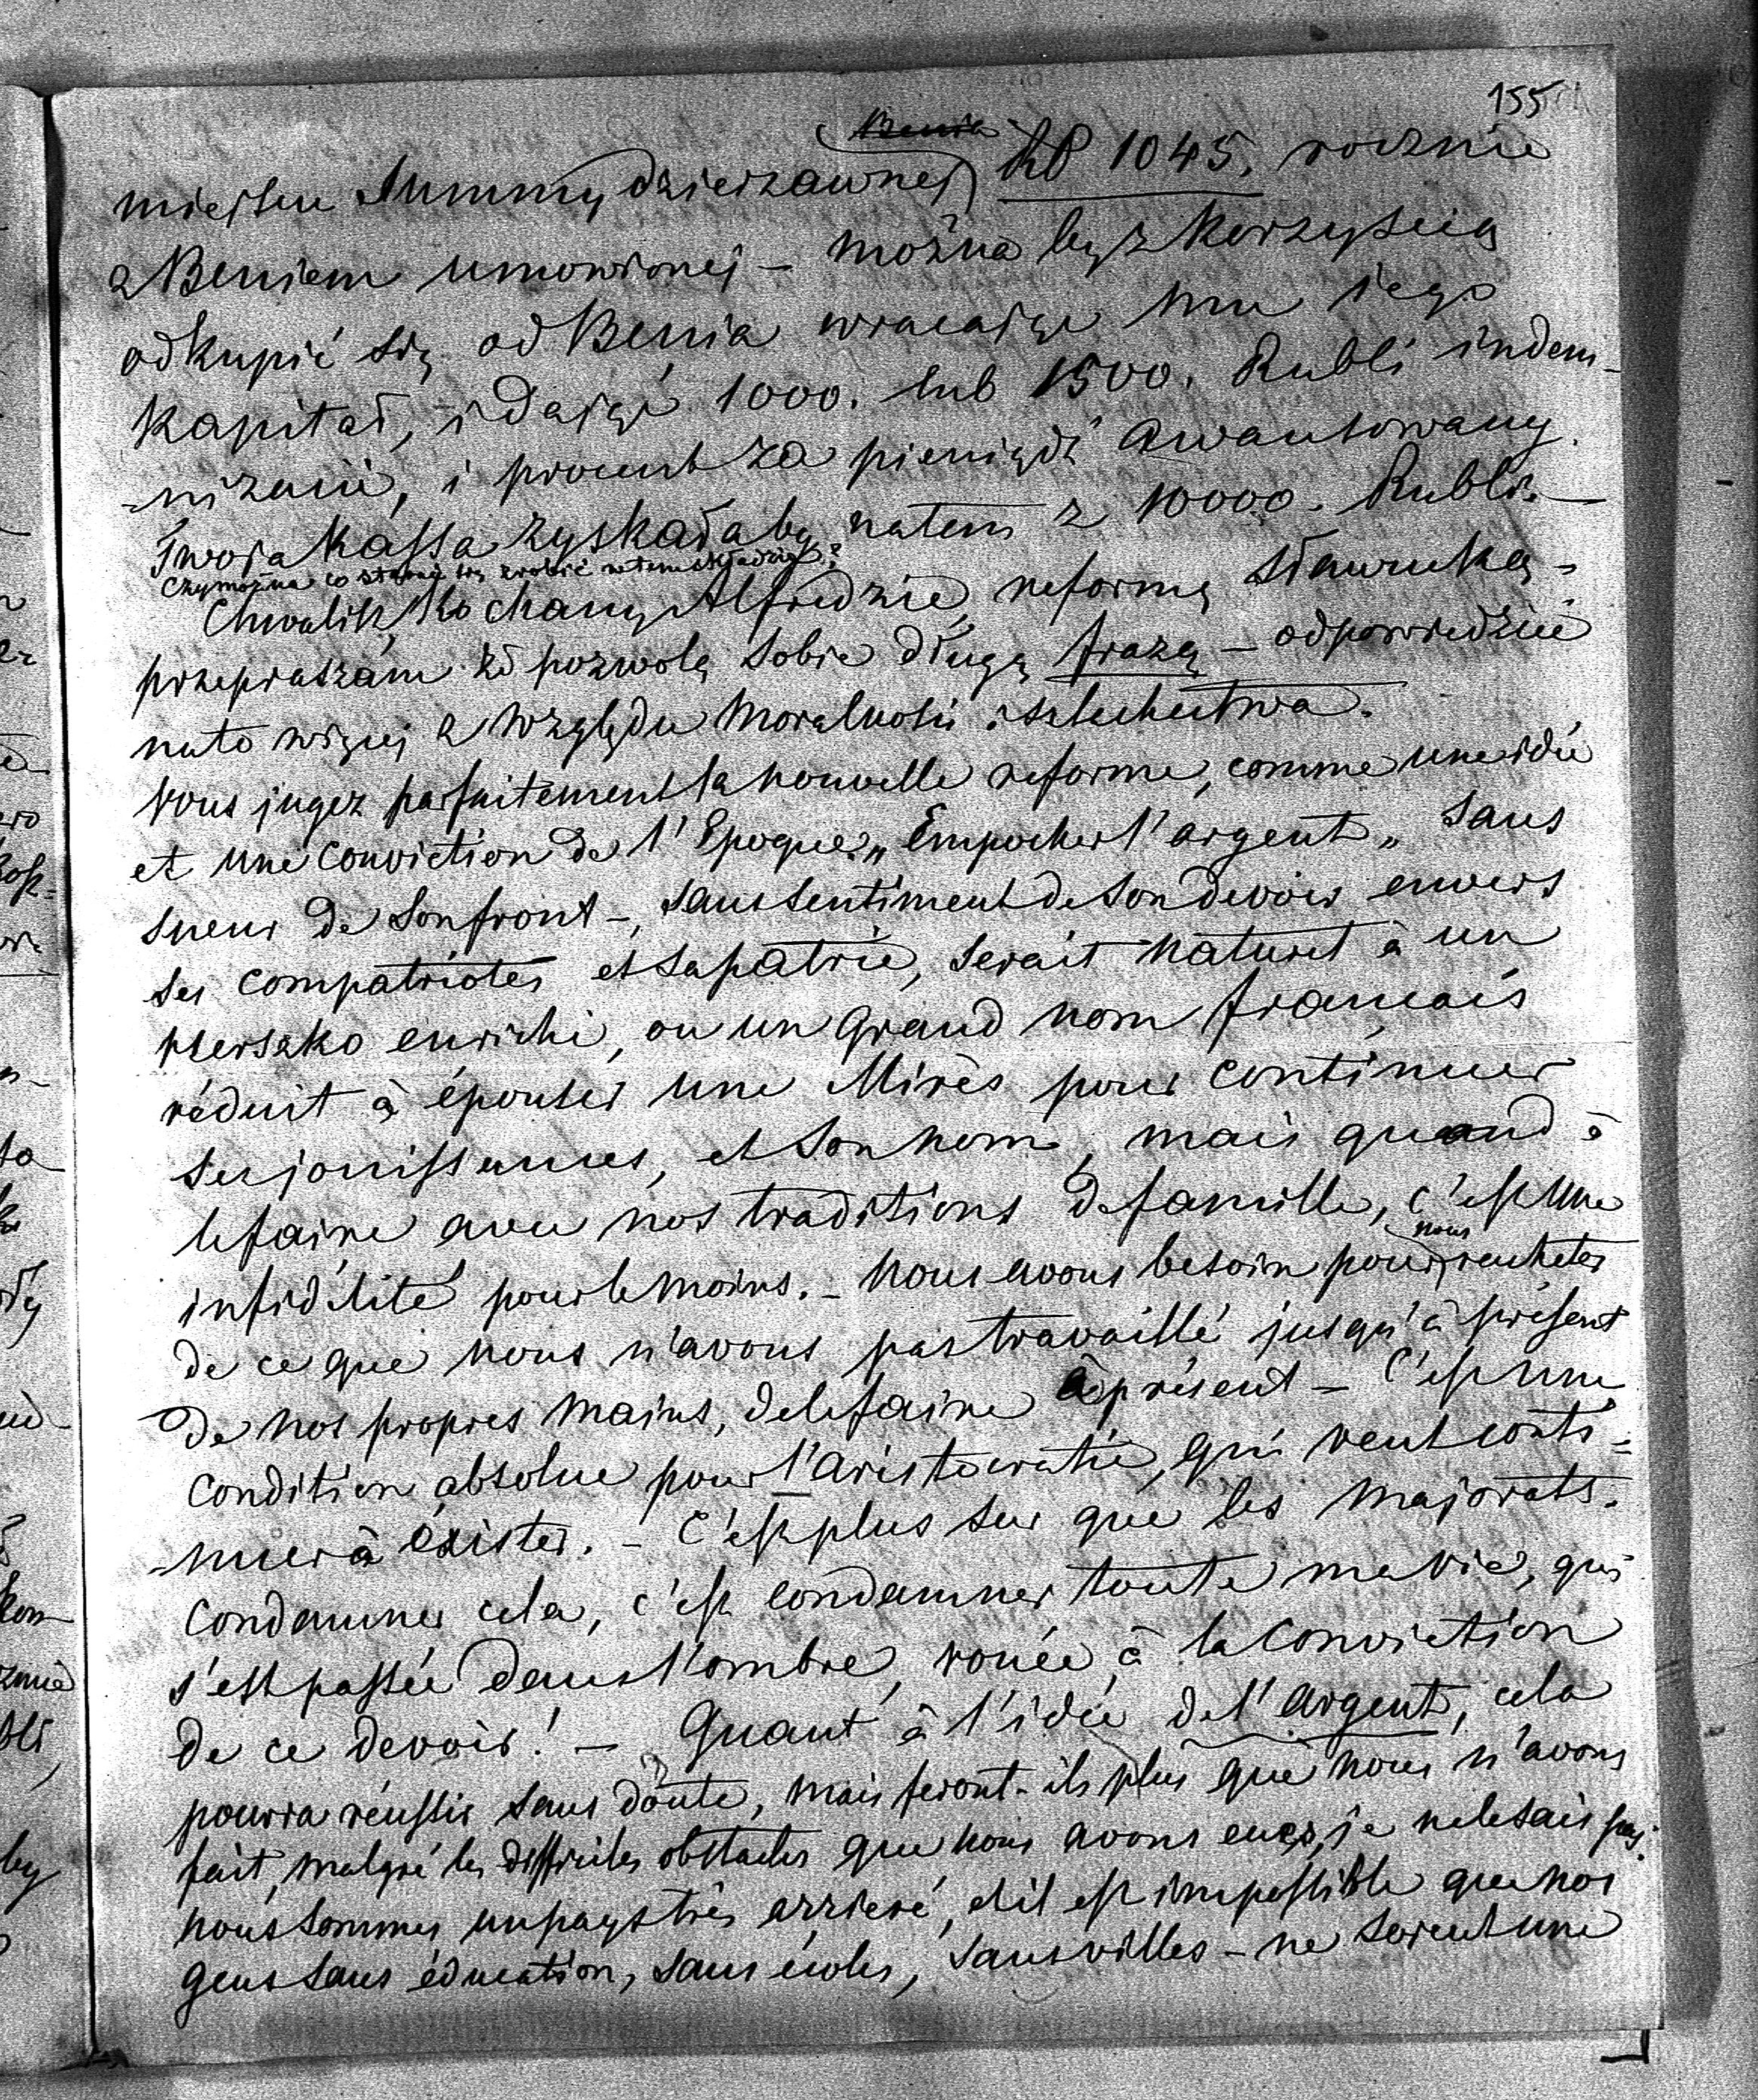 155
miejscu Summy dzierzawnej RP 1045. rocznie
z Beniem umowionej – można by z korzyścią
odkupić się od Benia wracając mu iego
kapitał, i dając 1000. lub 1500. Rubli indem-
-nizacii, i procent za pieniądz awansowany.
Twoia kassa zyskałaby natem z 10000. Rubli. –
Czy można co stanąć się zrobić w tem
Chwalisz, kochany Alfredzie, reformę Sławucką –
przepraszam że pozwolę sobie długą frazą – odpowiedzieć
nato więcej z względu moralności i szlachectwa.
Vous jugez parfaitement la nouvelle reforme, comme une idée
et une conviction de l'Epoque. „Empocher l'argent„ sans
sueur de son front –, sans sentiment de son devoir envers
ses compatriotes et sa patrie, serait naturel à un
enrichi, ou un grand nom français
réduit à épouser une Mirès pour continuer
ses jouissances, et son nom, mais quand à
le faire avec nos traditions de famille, c'est une
infidélité pour le moins. – Nous avons besoin pour nous racheter
de ce que nous n'avons pas travaillé jusqu'à présent
de nos propres mains, de le faire à présent – C'est une
condition absolue pour l'aristocratie, qui veut conti=
-nuer à éxister. – C'est plus sur que les majorats.
Condamner cela, c'est condamner toute ma vie, qui
s'est passée dans l'ombre, vouée à la conviction
de ce devoir! – Quant à l'idée de l'argent, cela
pourra réussir sans doute, mais feront-ils plus que nous n'avons
fait, malgré les difficiles obstacles que nous avons eues, je ne le sais pas.
nous sommes un pays très arrieré, et il est impossible que nos
gens sans éducation, sans écoles, sans villes – ne soient une